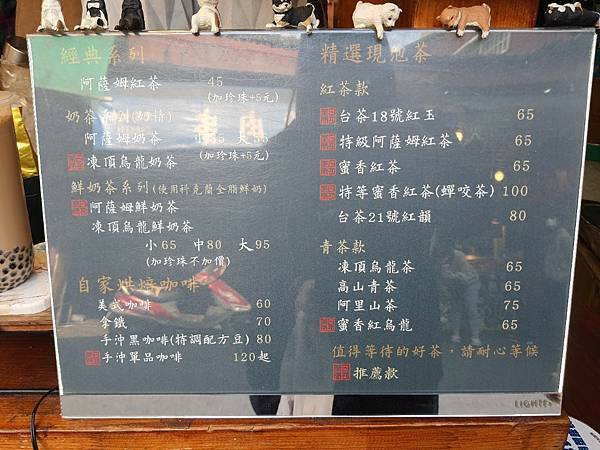 經典系列
阿薩姆紅茶 45
(加珍珠+5元)
奶茶系列(奶精)
阿薩姆奶茶 大
凍頂烏龍奶茶 (加珍珠+5元)
鮮奶茶系列(使用科克蘭全脂鮮奶)
阿薩姆鮮奶茶
凍頂烏龍鮮奶茶
小65 中80 大95
(加珍珠不加價)
自家烘焙咖啡
美式咖啡 60
拿鐵 70
手沖黑咖啡(特調配方豆) 80
手沖單品咖啡 120起
精選現泡茶
紅茶款
台茶18號紅玉 65
特級阿薩姆紅茶 65
蜜香紅茶 65
特等蜜香紅茶(蟬咬茶) 100
台茶21號紅韻 80
青茶款
凍頂烏龍茶 65
高山青茶 65
阿里山茶 75
蜜香紅烏龍 65
值得等待的好茶，請耐心等候
推薦款